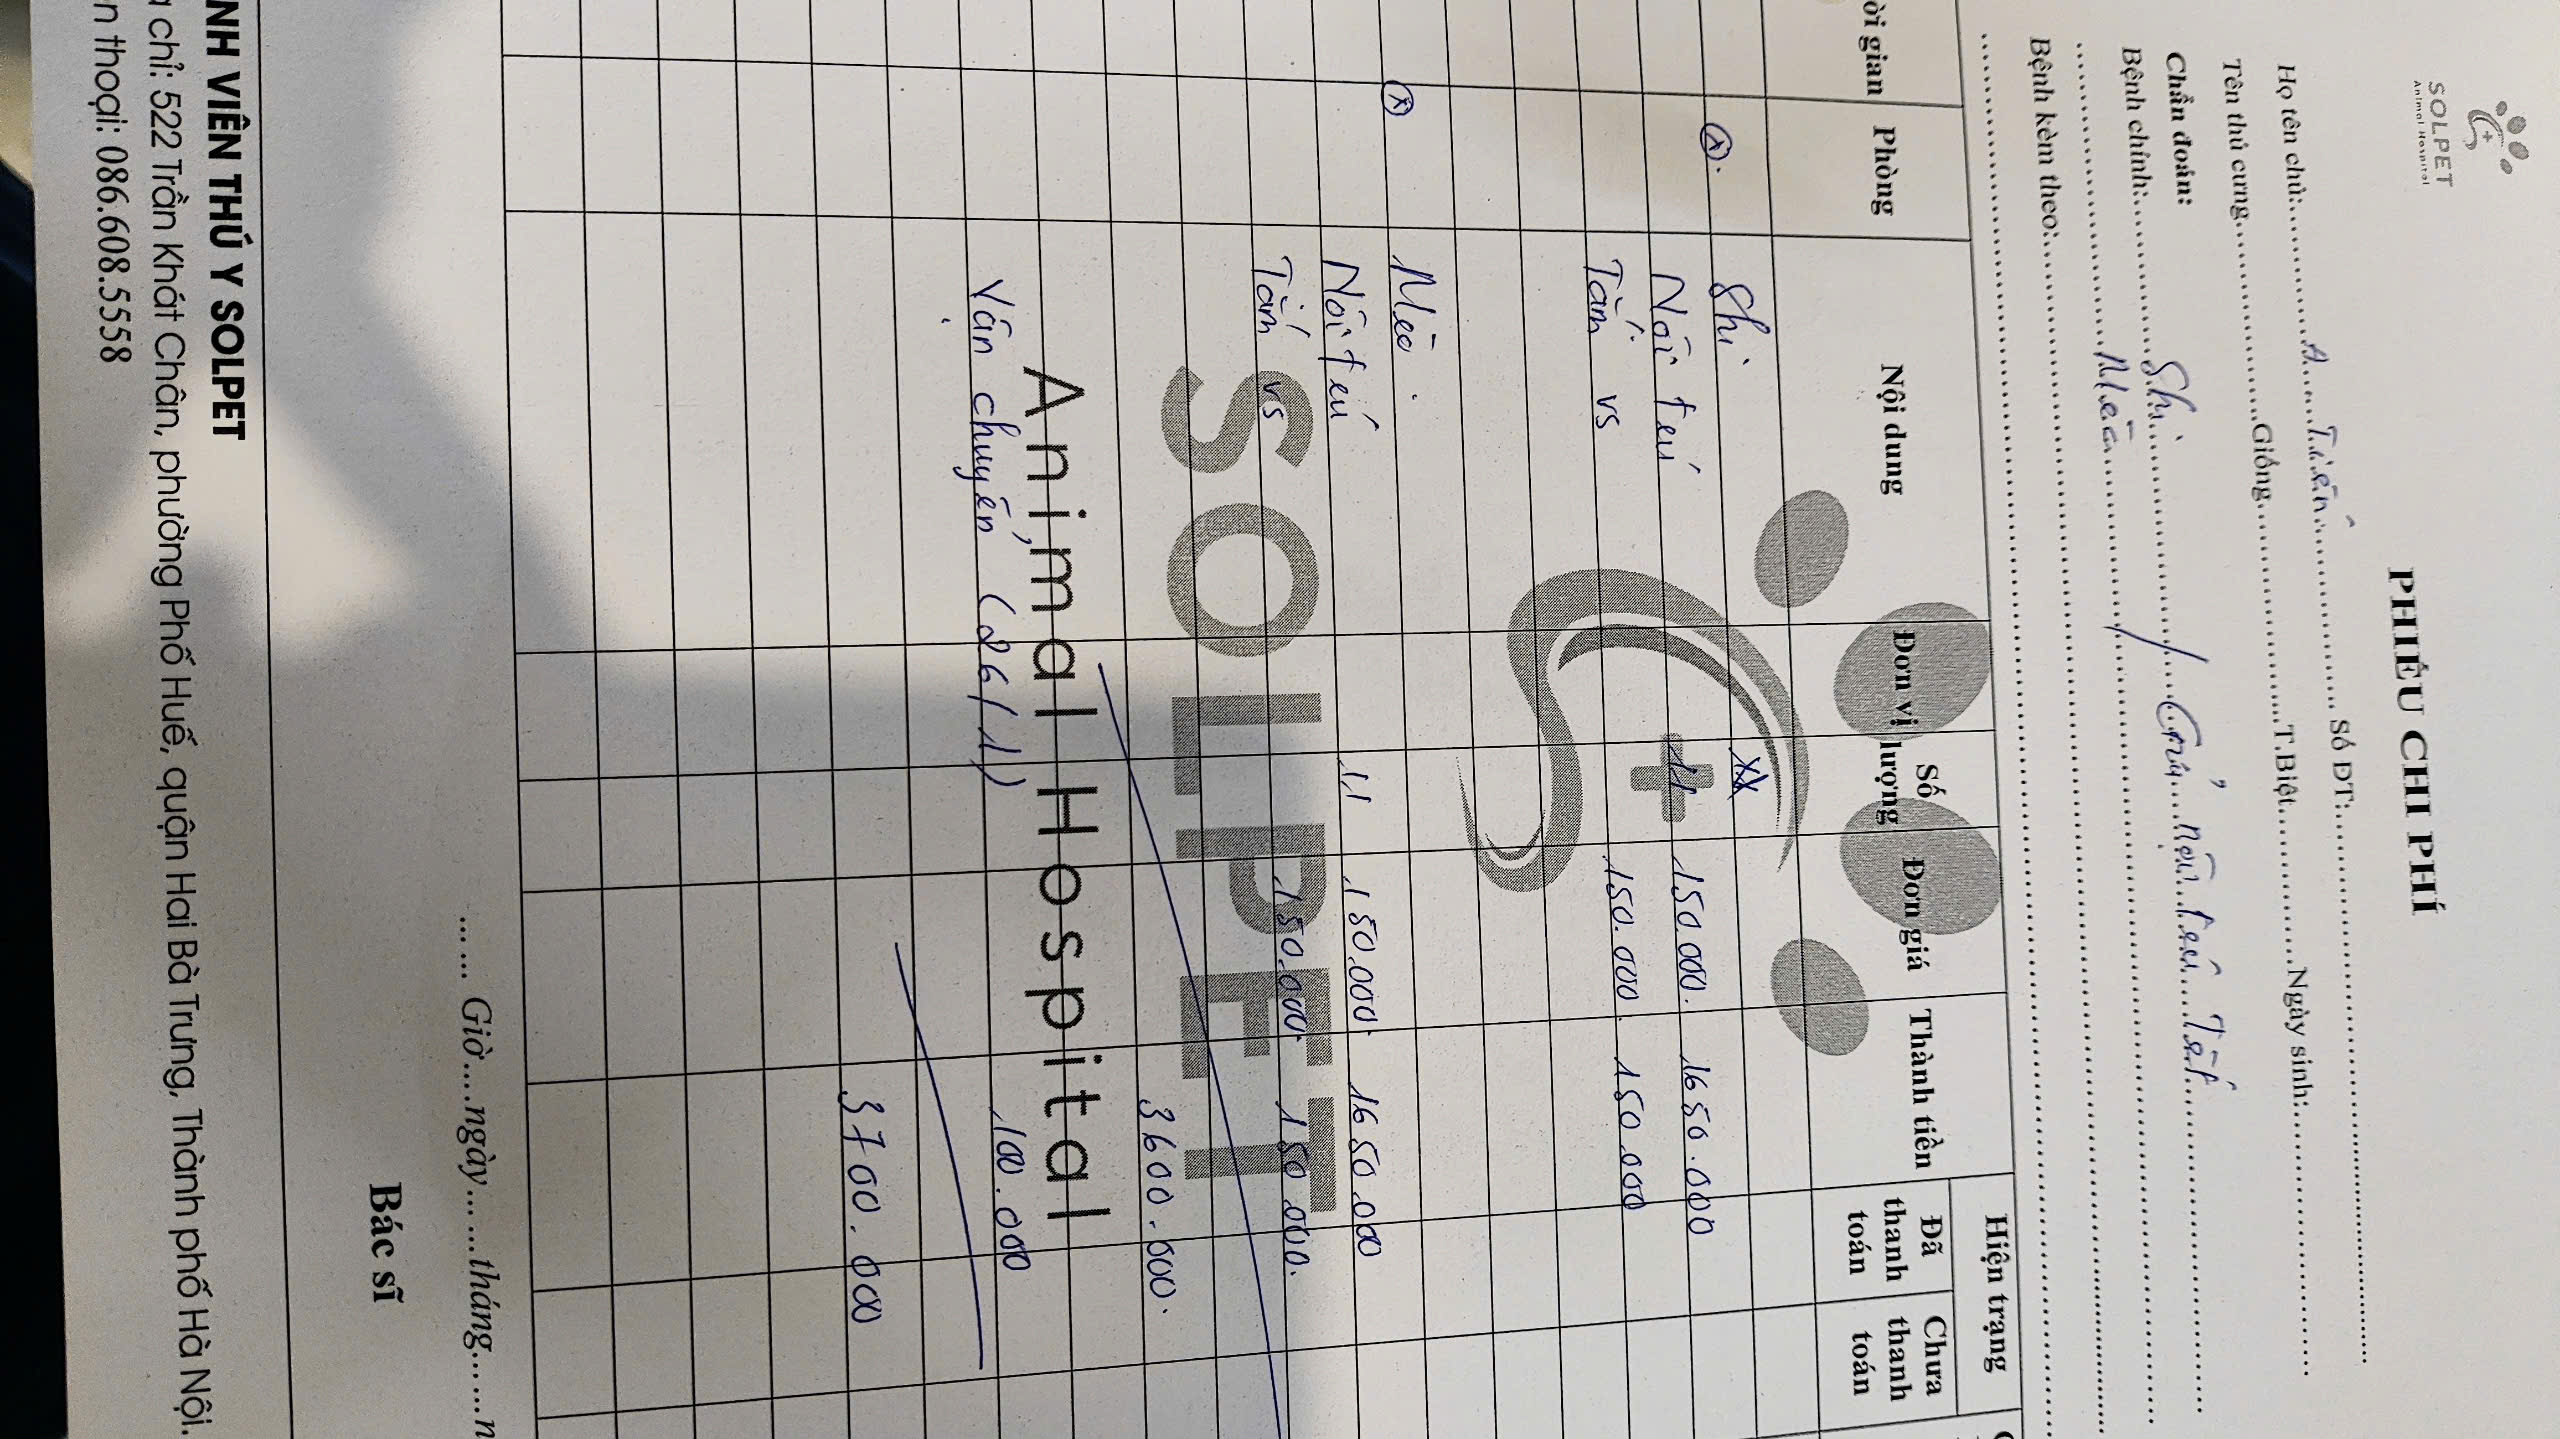 SOLPET
Animal Hospital
PHIẾU CHI PHÍ
Họ tên chủ: A. Tiến Số ĐT:
Tên thú cưng Giống T.Biệt Ngày sinh:
Chẩn đoán:
Bệnh chính: Shi / Gửi nội trú Tết
Mèo
Bệnh kèm theo:
ời gian Phòng Nội dung Đơn vị Số lượng Đơn giá Thành tiền Hiện trạng
Đã thanh toán Chưa thanh toán
Shi
Nội trú 11 150.000. 1650.000
Tắm vs 150.000. 150.000
Mèo.
Nội trú 11 150.000 1650.000
Tắm vs 150.000 150.000.
3600.000.
SOLPET
Animal Hospital
Vận chuyển (26/1) 100.000
3700.000
... ... Giờ....ngày... ...tháng... ...n
Bác sĩ
NH VIÊN THÚ Y SOLPET
a chỉ: 522 Trần Khát Chân, phường Phố Huế, quận Hai Bà Trưng, Thành phố Hà Nội.
n thoại: 086.608.5558